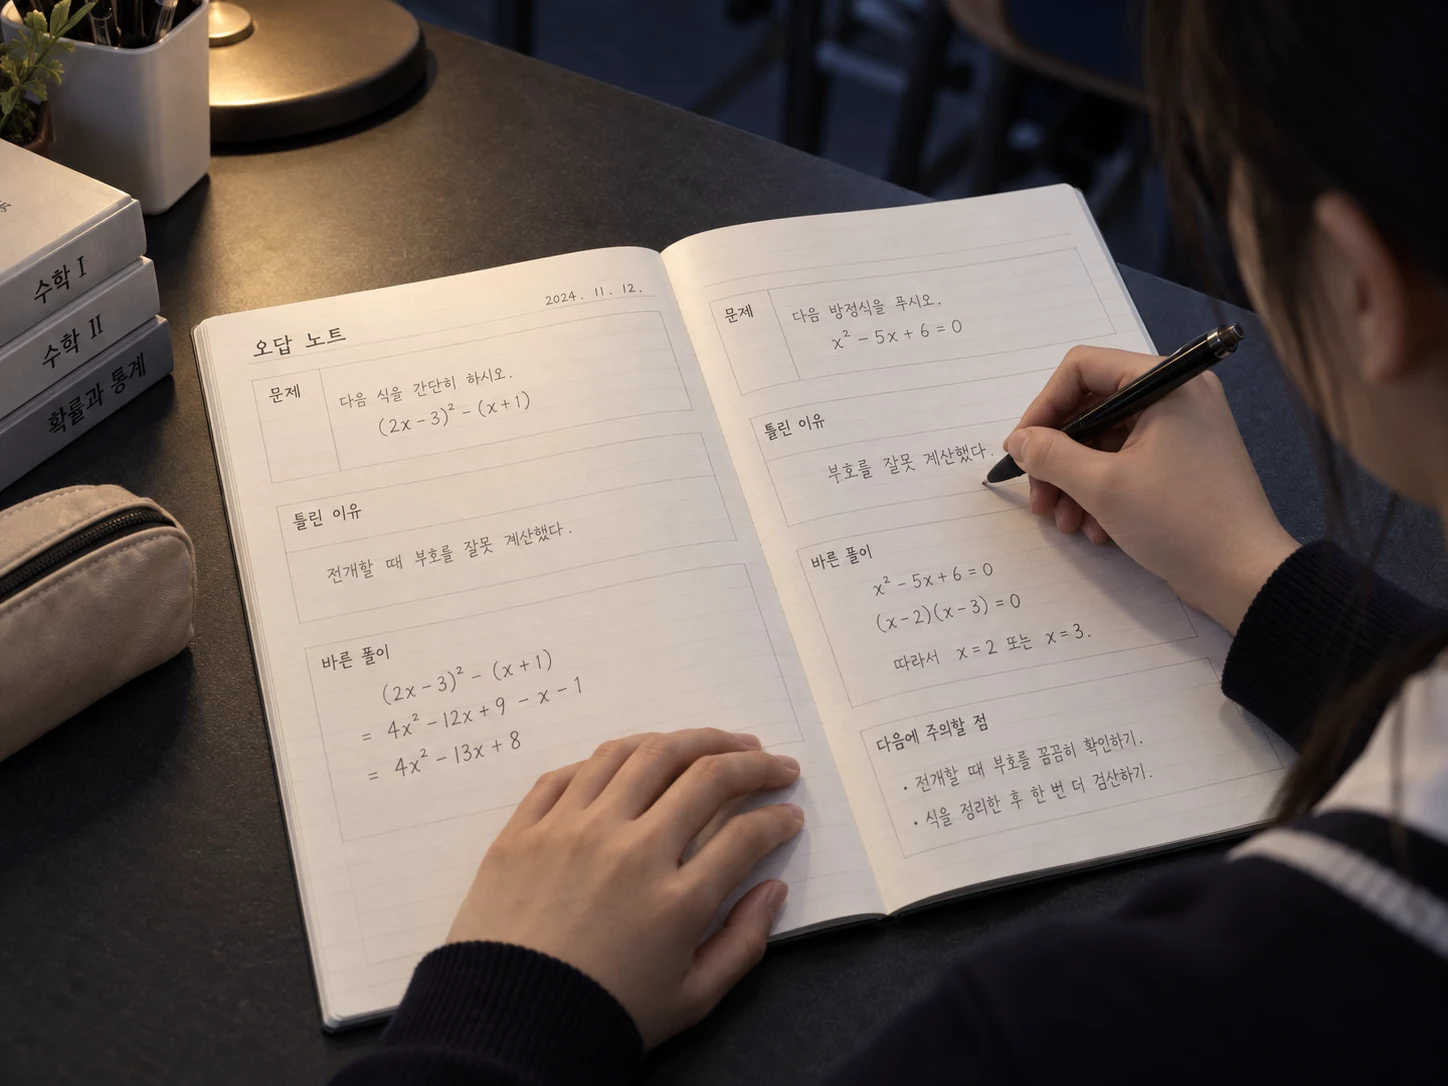 수학 I
수학 II
확률과 통계
2024. 11. 12.
오답 노트
문제
다음 식을 간단히 하시오.
(2x - 3)² - (x + 1)
틀린 이유
전개할 때 부호를 잘못 계산했다.
바른 풀이
(2x - 3)² - (x + 1)
= 4x² - 12x + 9 - x - 1
= 4x² - 13x + 8
문제
다음 방정식을 푸시오.
x² - 5x + 6 = 0
틀린 이유
부호를 잘못 계산했다.
바른 풀이
x² - 5x + 6 = 0
(x - 2)(x - 3) = 0
따라서 x = 2 또는 x = 3.
다음에 주의할 점
• 전개할 때 부호를 꼼꼼히 확인하기.
• 식을 정리한 후 한 번 더 검산하기.